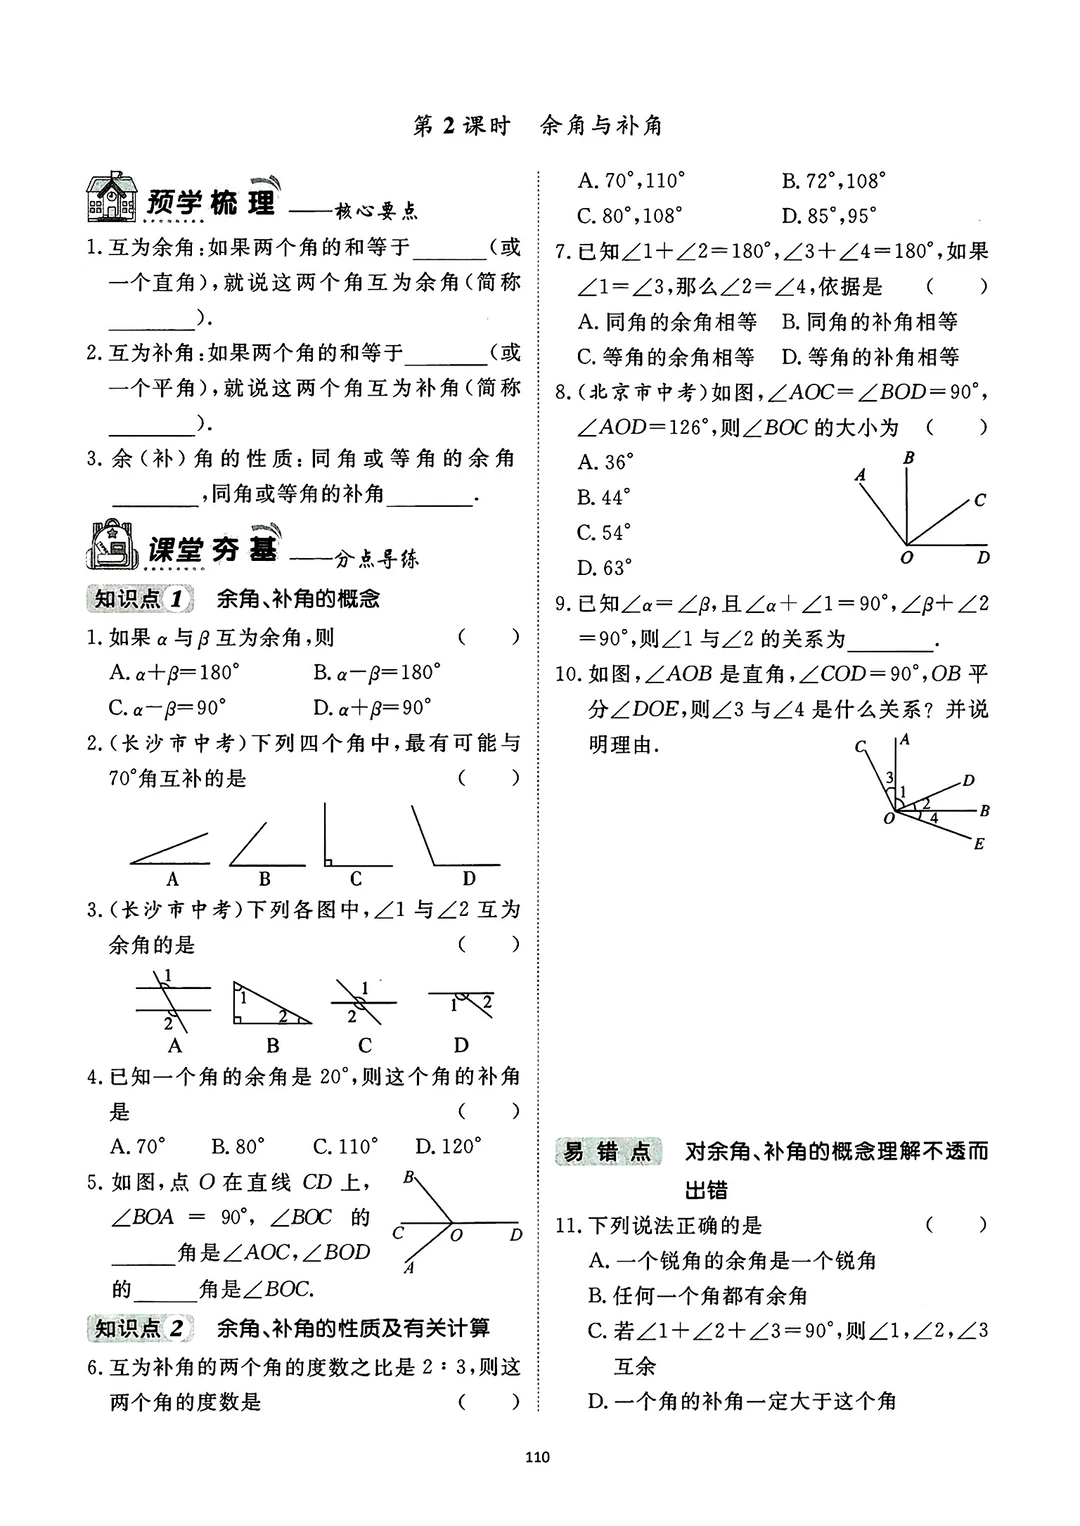 第2课时 余角与补角
预学梳理——核心要点
1.互为余角:如果两个角的和等于______(或
一个直角),就说这两个角互为余角(简称
______).
2.互为补角:如果两个角的和等于______(或
一个平角),就说这两个角互为补角(简称
______).
3.余(补)角的性质:同角或等角的余角
______,同角或等角的补角______.
课堂夯基——分点导练
知识点1 余角、补角的概念
1.如果α与β互为余角,则 ( )
A.α+β=180° B.α-β=180°
C.α-β=90° D.α+β=90°
2.(长沙市中考)下列四个角中,最有可能与
70°角互补的是 ( )
A B C D
3.(长沙市中考)下列各图中,∠1与∠2互为
余角的是 ( )
1 2 1 2 1 2 1 2
A B C D
4.已知一个角的余角是20°,则这个角的补角
是 ( )
A.70° B.80° C.110° D.120°
5.如图,点O在直线CD上,
∠BOA = 90°, ∠BOC 的
______角是∠AOC,∠BOD
的______角是∠BOC.
B C O D A
知识点2 余角、补角的性质及有关计算
6.互为补角的两个角的度数之比是2∶3,则这
两个角的度数是 ( )
A.70°,110° B.72°,108°
C.80°,108° D.85°,95°
7.已知∠1+∠2=180°,∠3+∠4=180°,如果
∠1=∠3,那么∠2=∠4,依据是 ( )
A.同角的余角相等 B.同角的补角相等
C.等角的余角相等 D.等角的补角相等
8.(北京市中考)如图,∠AOC=∠BOD=90°,
∠AOD=126°,则∠BOC的大小为 ( )
A.36°
B.44°
C.54°
D.63°
A B C O D
9.已知∠α=∠β,且∠α+∠1=90°,∠β+∠2
=90°,则∠1与∠2的关系为______.
10.如图,∠AOB是直角,∠COD=90°,OB平
分∠DOE,则∠3与∠4是什么关系?并说
明理由.
C A D B E O 3 1 2 4
易错点 对余角、补角的概念理解不透而
出错
11.下列说法正确的是 ( )
A.一个锐角的余角是一个锐角
B.任何一个角都有余角
C.若∠1+∠2+∠3=90°,则∠1,∠2,∠3
互余
D.一个角的补角一定大于这个角
110